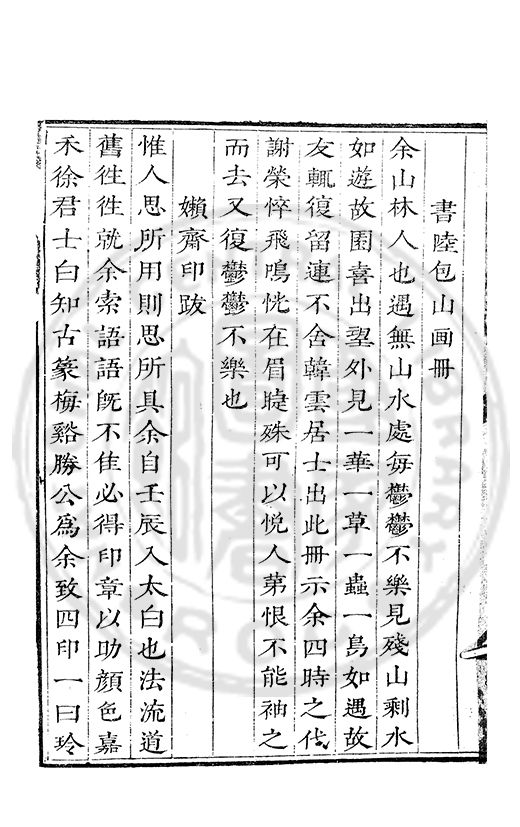 書陸包山画冊
余山林人也遇無山水處每鬱鬱不樂見殘山剩水
如遊故園喜出望外見一華一草一蟲一鳥如遇故
友輒復留連不舍韓雲居士出此冊示余四時之代
謝榮悴飛鳴恍在眉睫殊可以悅人苐恨不能袖之
而去又復鬱鬱不樂也
嬾齋印跋
惟人思所用則思所具余自壬辰入太白也法流道
舊徃徃就余索語語旣不佳必得印章以助顔色嘉
禾徐君士白知古篆梅谿勝公爲余致四印一曰玲